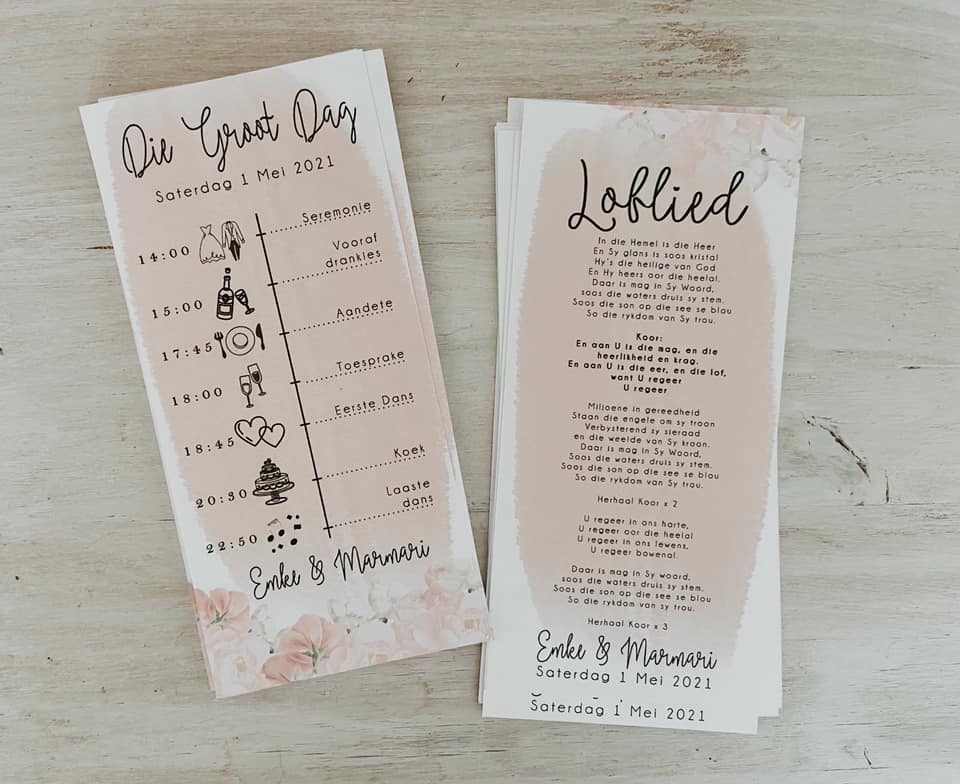 Die Groot Dag
Saterdag 1 Mei 2021
14:00
Seremonie
15:00
Vooraf
drankies
17:45
Aandete
18:00
Toesprake
18:45
Eerste Dans
20:30
Koek
22:50
Laaste
dans
Emke & Marmari
Loflied
In die Hemel is die Heer
En Sy glans is soos kristal
Hy's die heilige van God
En Hy heers oor die heelal.
Daar is mag in Sy Woord,
soos die waters druis sy stem.
Soos die son op die see se blou
So die rykdom van Sy trou.
Koor:
En aan U is die mag, en die
heerlikheid en krag.
En aan U is die eer, en die lof,
want U regeer
U regeer
Miljoene in gereedheid
Staan die engele om sy troon
Verbysterend sy sieraad
en die weelde van Sy kroon.
Daar is mag in Sy Woord,
Soos die waters druis sy stem.
Soos die son op die see se blou
So die rykdom van Sy trou.
Herhaal Koor x 2
U regeer in ons harte,
U regeer oor die heelal
U regeer in ons lewens,
U regeer bowenal.
Daar is mag in Sy woord,
soos die waters druis sy stem.
Soos die son op die see se blou
So die rykdom van sy trou.
Herhaal Koor x 3
Emke & Marmari
Saterdag 1 Mei 2021
Saterdag 1 Mei 2021